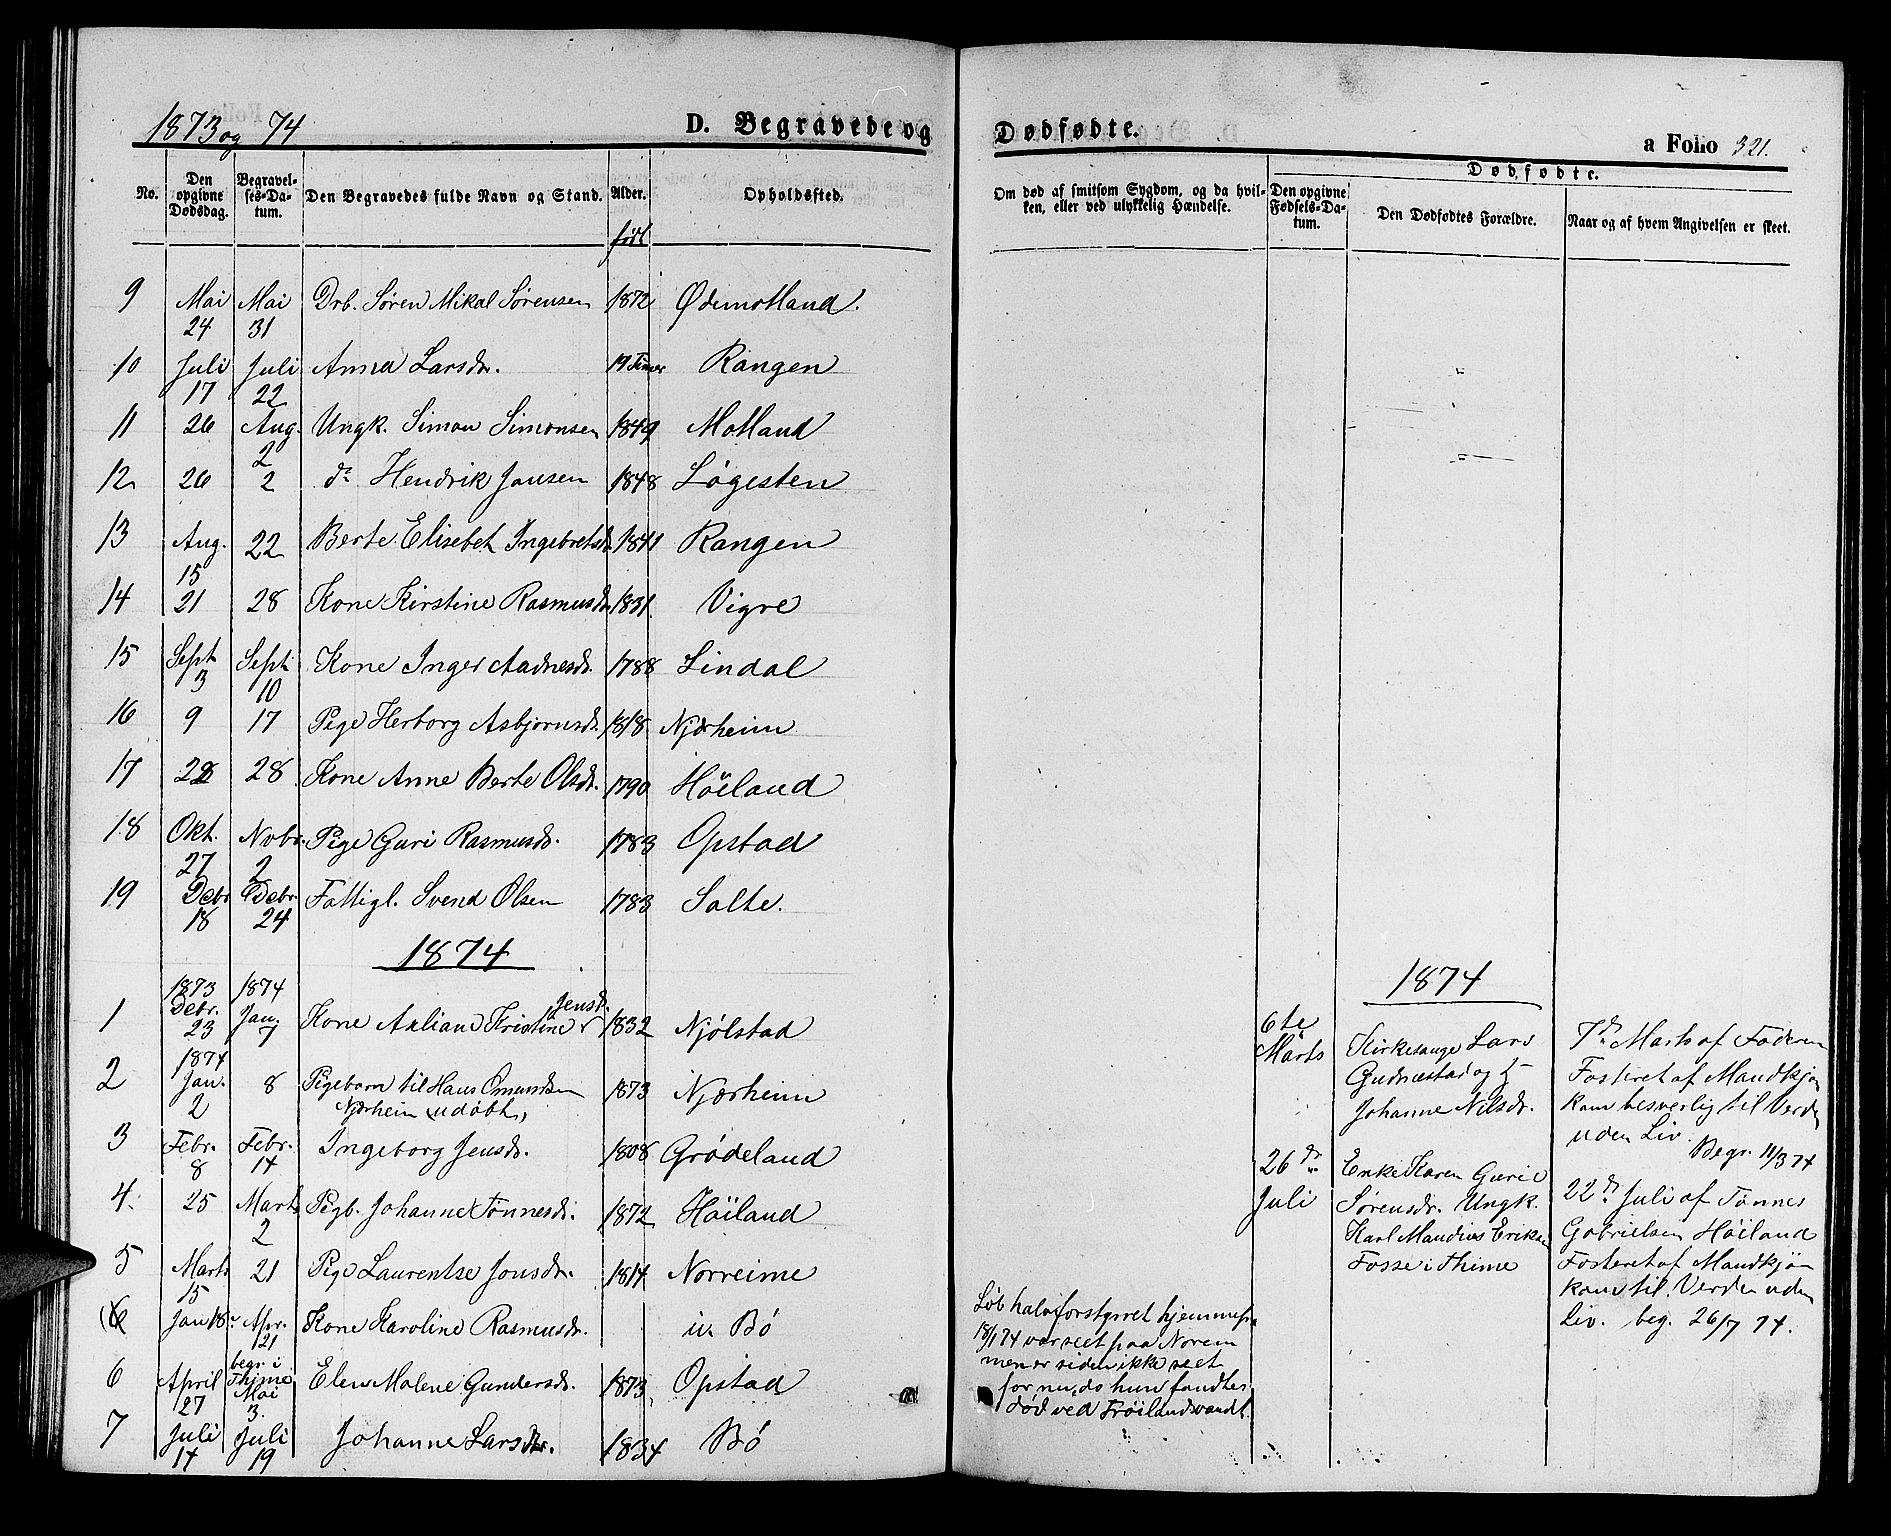 1873 og 74
D. Begravede og
No.
Den opgivne Dødsdag.
Begravelses-Datum.
Den Begravedes fulde Navn og Stand.
Alder.
Opholdsfted.
født
9 Mai 24 Mai 31 Drb. Søren Mikal Sørensen 1872 Ødemotland.
10 Juli 17 Juli 22 Anna Larsdr. 19 Timer Rangen
11 26 Aug. 2 Ungk. Simon Simonsen 1849 Motland
12 26 2 do Hendrik Jansen 1848 Løgesten
13 Aug. 15 22 Berte Elisebet Ingebretsdr. 1841 Rangen
14 21 28 Kone Kirstine Rasmusdr. 1831 Vigre
15 Sept 3 Sept 10 Kone Inger Aadnesdr. 1788 Lindal
16 9 17 Pige Herborg Asbjørnsdr. 1818 Njærheim
17 22 28 Kone Anne Berte Olsdr. 1790 Höiland
18 Okt. 27 Nobr. 2 Pige Guri Rasmusdr. 1783 Opstad
19 Debr 18 Debr. 24 Fattigl. Svend Olsen 1783 Salte.
1874
1873 1874
1 Debr. 23 Jan. 7 Kone Axliane Kristine Jensdr. 1832 Njølstad
1874
2 Jan. 2 8 Pigebarn til Hans Omundsen 1873 Njærheim
Njærheim udøbt,
3 Febr. 8 Febr. 14 Ingeborg Jensdr. 1808 Grødeland
4. 25 Marts 2 Pigb. Johanne Tønnesdr. 1872 Höiland
5 Marts 15 21 Pige Laurentse Jonsdr. 1814 Norreime
6 Jan 18 Apr. 21 begr. i Thime Kone Karoline Rasmusdr. Bø
6 April 27 Mai 3. Elen Malene Gundersdr. 1873 Opstad
7 Juli 14 Juli 19 Johanne Larsdr. 1834 Bø
Dødfødte.
a Folio 321.
Om død af smitsom Sygdom, og da hvilken, eller ved ulykkelig Hændelse.
Dødfødte.
Den opgivne Fødsels-Datum.
Den Dødfødtes Forældre.
Naar og af hvem Angivelsen er skeet.
1874
6te Marts
Kirkesanger Lars
Gudnestad og H
Johanne Nilsdr.
7de Marts af Faderen
Fosteret af Mandkjøn
kom besverlig til Verden
uden Liv.
Begr. 11/3 74
26de Juli
Enke Karen Gurie
Sørensdr. Ungk.
Karl Maudius Eriksen
Fosse i Thime
22de Juli af Tønnes
Gabrielsen Höiland
Fosteret af Mandkjøn
kom til Verden uden
Liv. beg. 26/7 74.
Løb halvforstyrret hjemmefra
18/1 74 var seet paa Norem
men er siden ikke seet
før nu, da hun fandtes
død ved Frøilandsvandt.